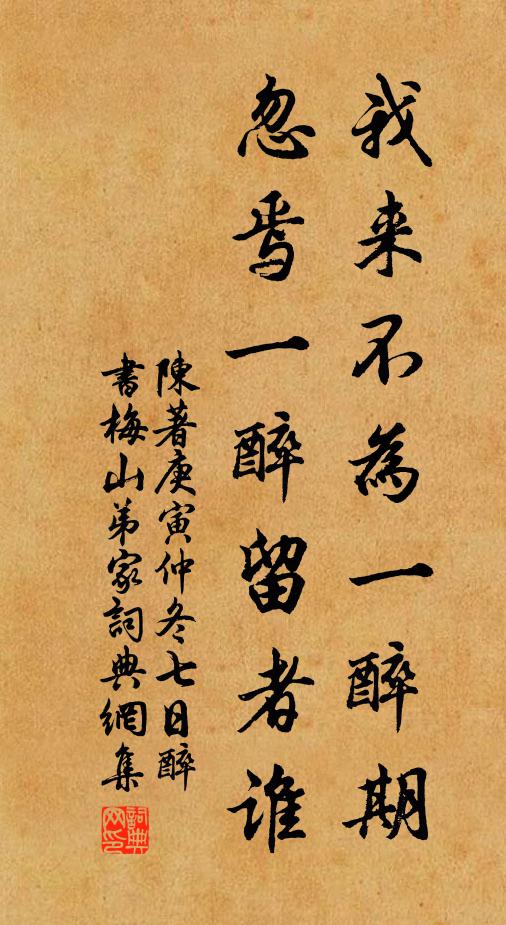 我来不為一醉期
忽焉一醉留者誰
陳著庚寅仲冬七日醉
書梅山弟家詞典網集
詞典網印